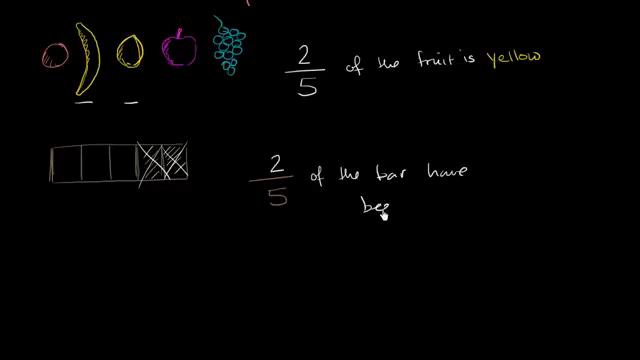 2/5 of the fruit is yellow
2/5 of the bar have
bee